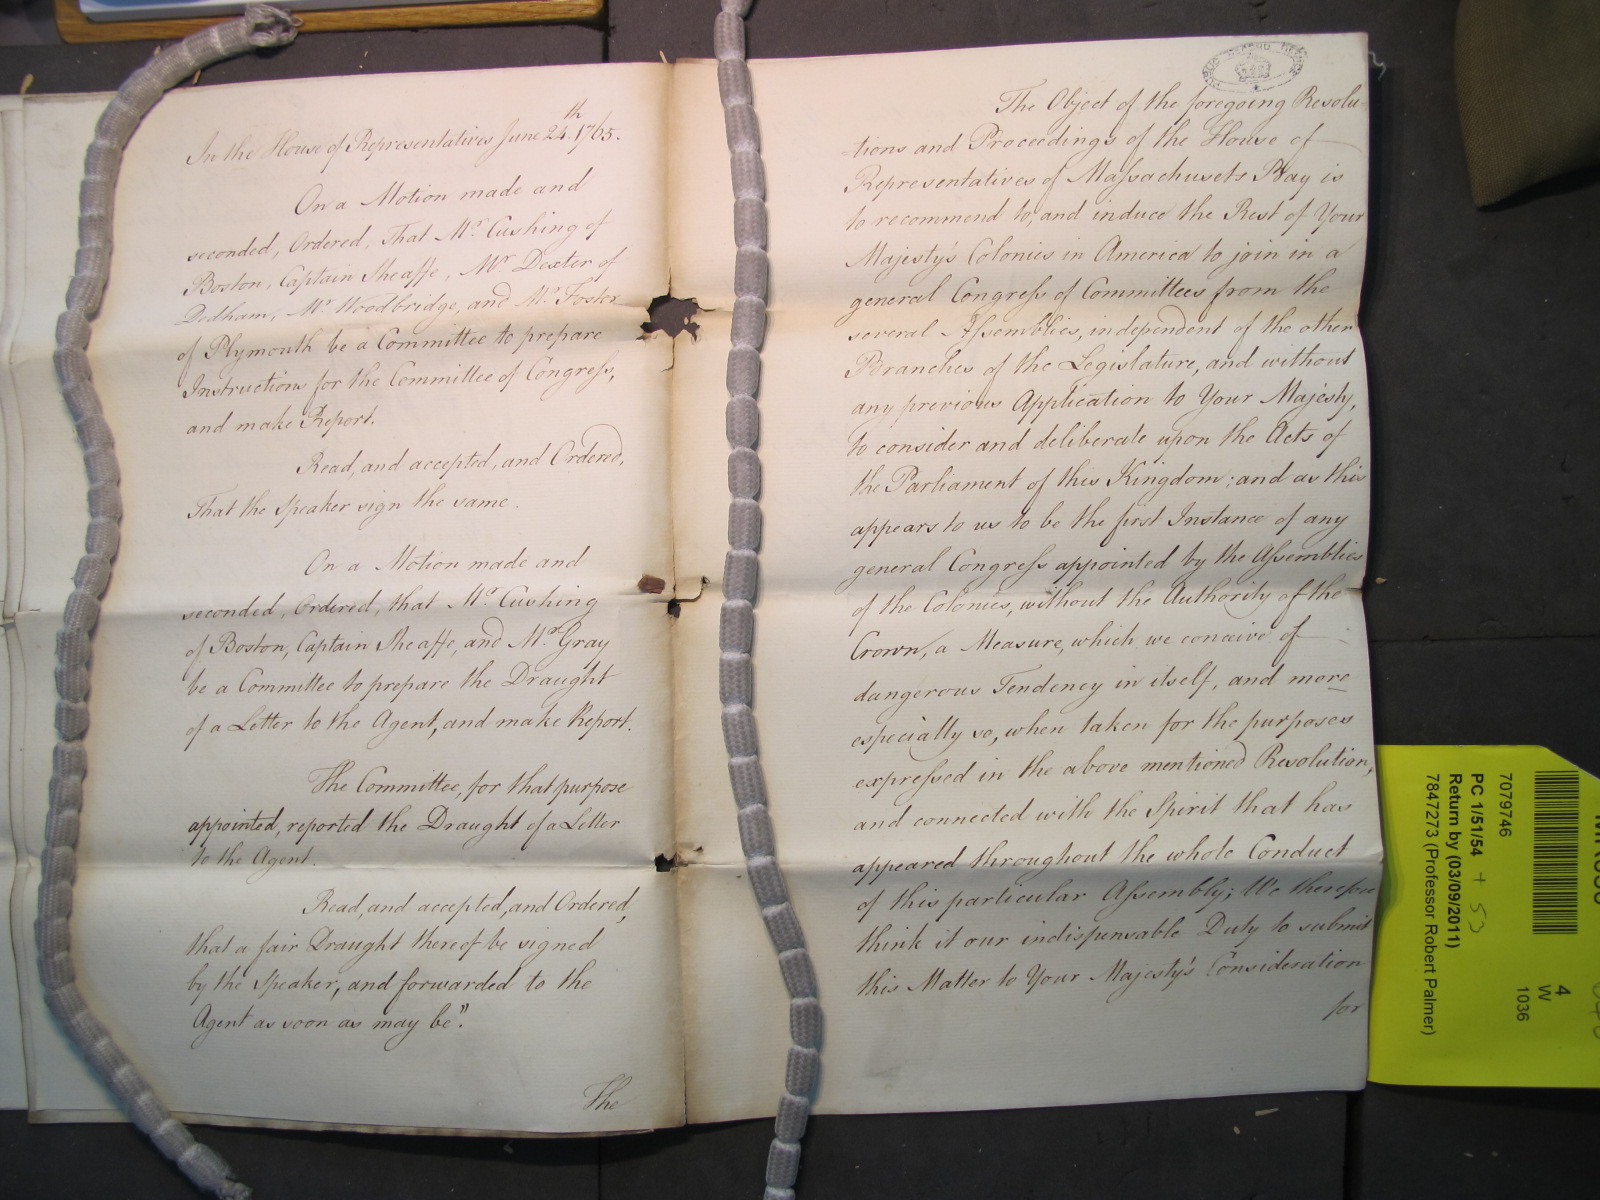 In the House of Representatives June 24.th 1765.
On a Motion made and
seconded, Ordered, That Mr. Cushing of
Boston, Captain Sheaffe, Mr. Dexter of
Dedham, Mr. Woodbridge, and Mr. Foster
of Plymouth be a Committee to prepare
Instructions for the Committee of Congreſs,
and make Report.
Read, and accepted, and Ordered,
That the Speaker sign the same.
On a Motion made and
seconded, Ordered, that Mr. Cushing
of Boston, Captain Sheaffe, and Mr. Gray
be a Committee to prepare the Draught
of a Letter to the Agent, and make Report.
The Committee, for that purpose
appointed, reported the Draught of a Letter
to the Agent.
Read, and accepted, and Ordered,
that a fair Draught thereof be signed
by the Speaker, and forwarded to the
Agent as soon as may be".
The
The Object of the foregoing Resolu-
-tions and Proceedings of the House of
Representatives of Maſsachusets Bay is
to recommend to, and induce the Rest of Your
Majesty's Colonies in America to join in a
general Congreſs of Committees from the
several Aſsemblies, independent of the other
Branches of the Legislature, and without
any previous Application to Your Majesty,
to consider and deliberate upon the Acts of
the Parliament of this Kingdom; and as this
appears to us to be the first Instance of any
general Congreſs appointed by the Aſsemblies
of the Colonies, without the Authority of the
Crown, a Measure, which we conceive of
dangerous Tendency in itself, and more
especially so, when taken for the purposes
expreſsed in the above mentioned Resolution,
and connected with the Spirit that has
appeared throughout the whole Conduct
of this particular Aſsembly; We therefore
think it our indispensable Duty to submit
this Matter to Your Majesty's Consideration
for
4
W
1036
7079746
PC 1/51/54 + 53
Return by (03/09/2011)
7847273 (Professor Robert Palmer)